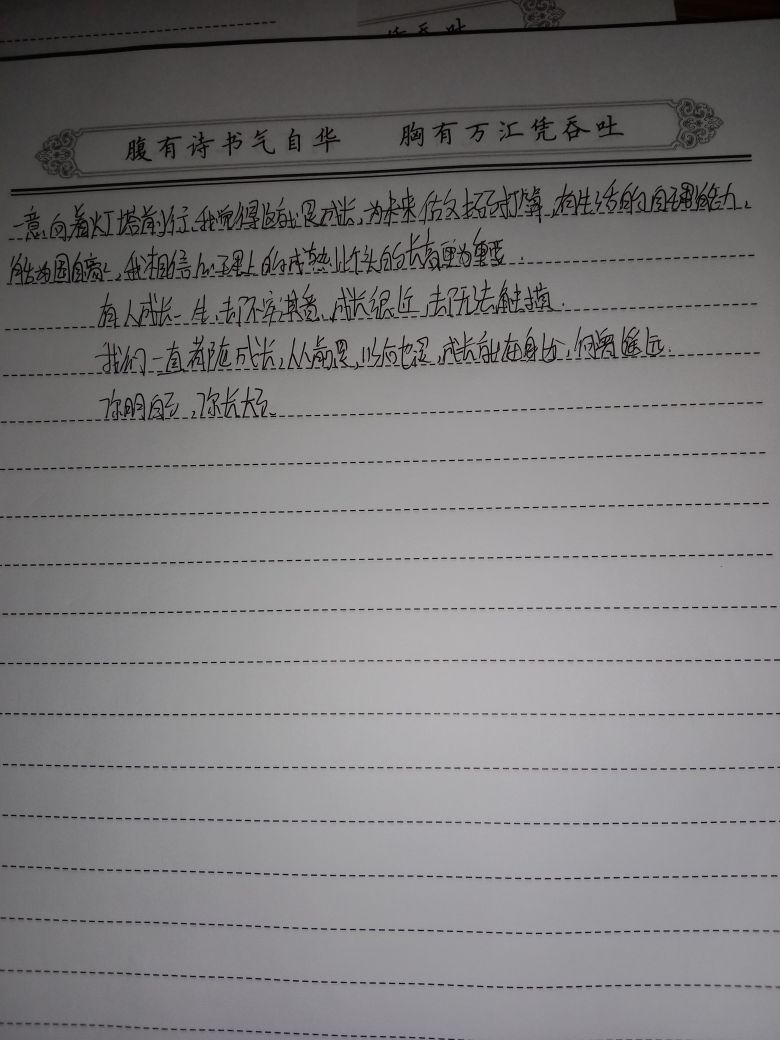 腹有诗书气自华 胸有万汇凭吞吐
意,向着灯塔前行.我觉得这就是成长,为未来做好打算,有生活的自理能力,
能为因自豪,我相信心理上的成熟比个头的长高更为重要.
有人成长一生,却不究其意,成长很近,却无法触摸.
我们一直都在成长,从前是,以后也是,成长就在身边,何需遥远.
你明白了,你长大了.